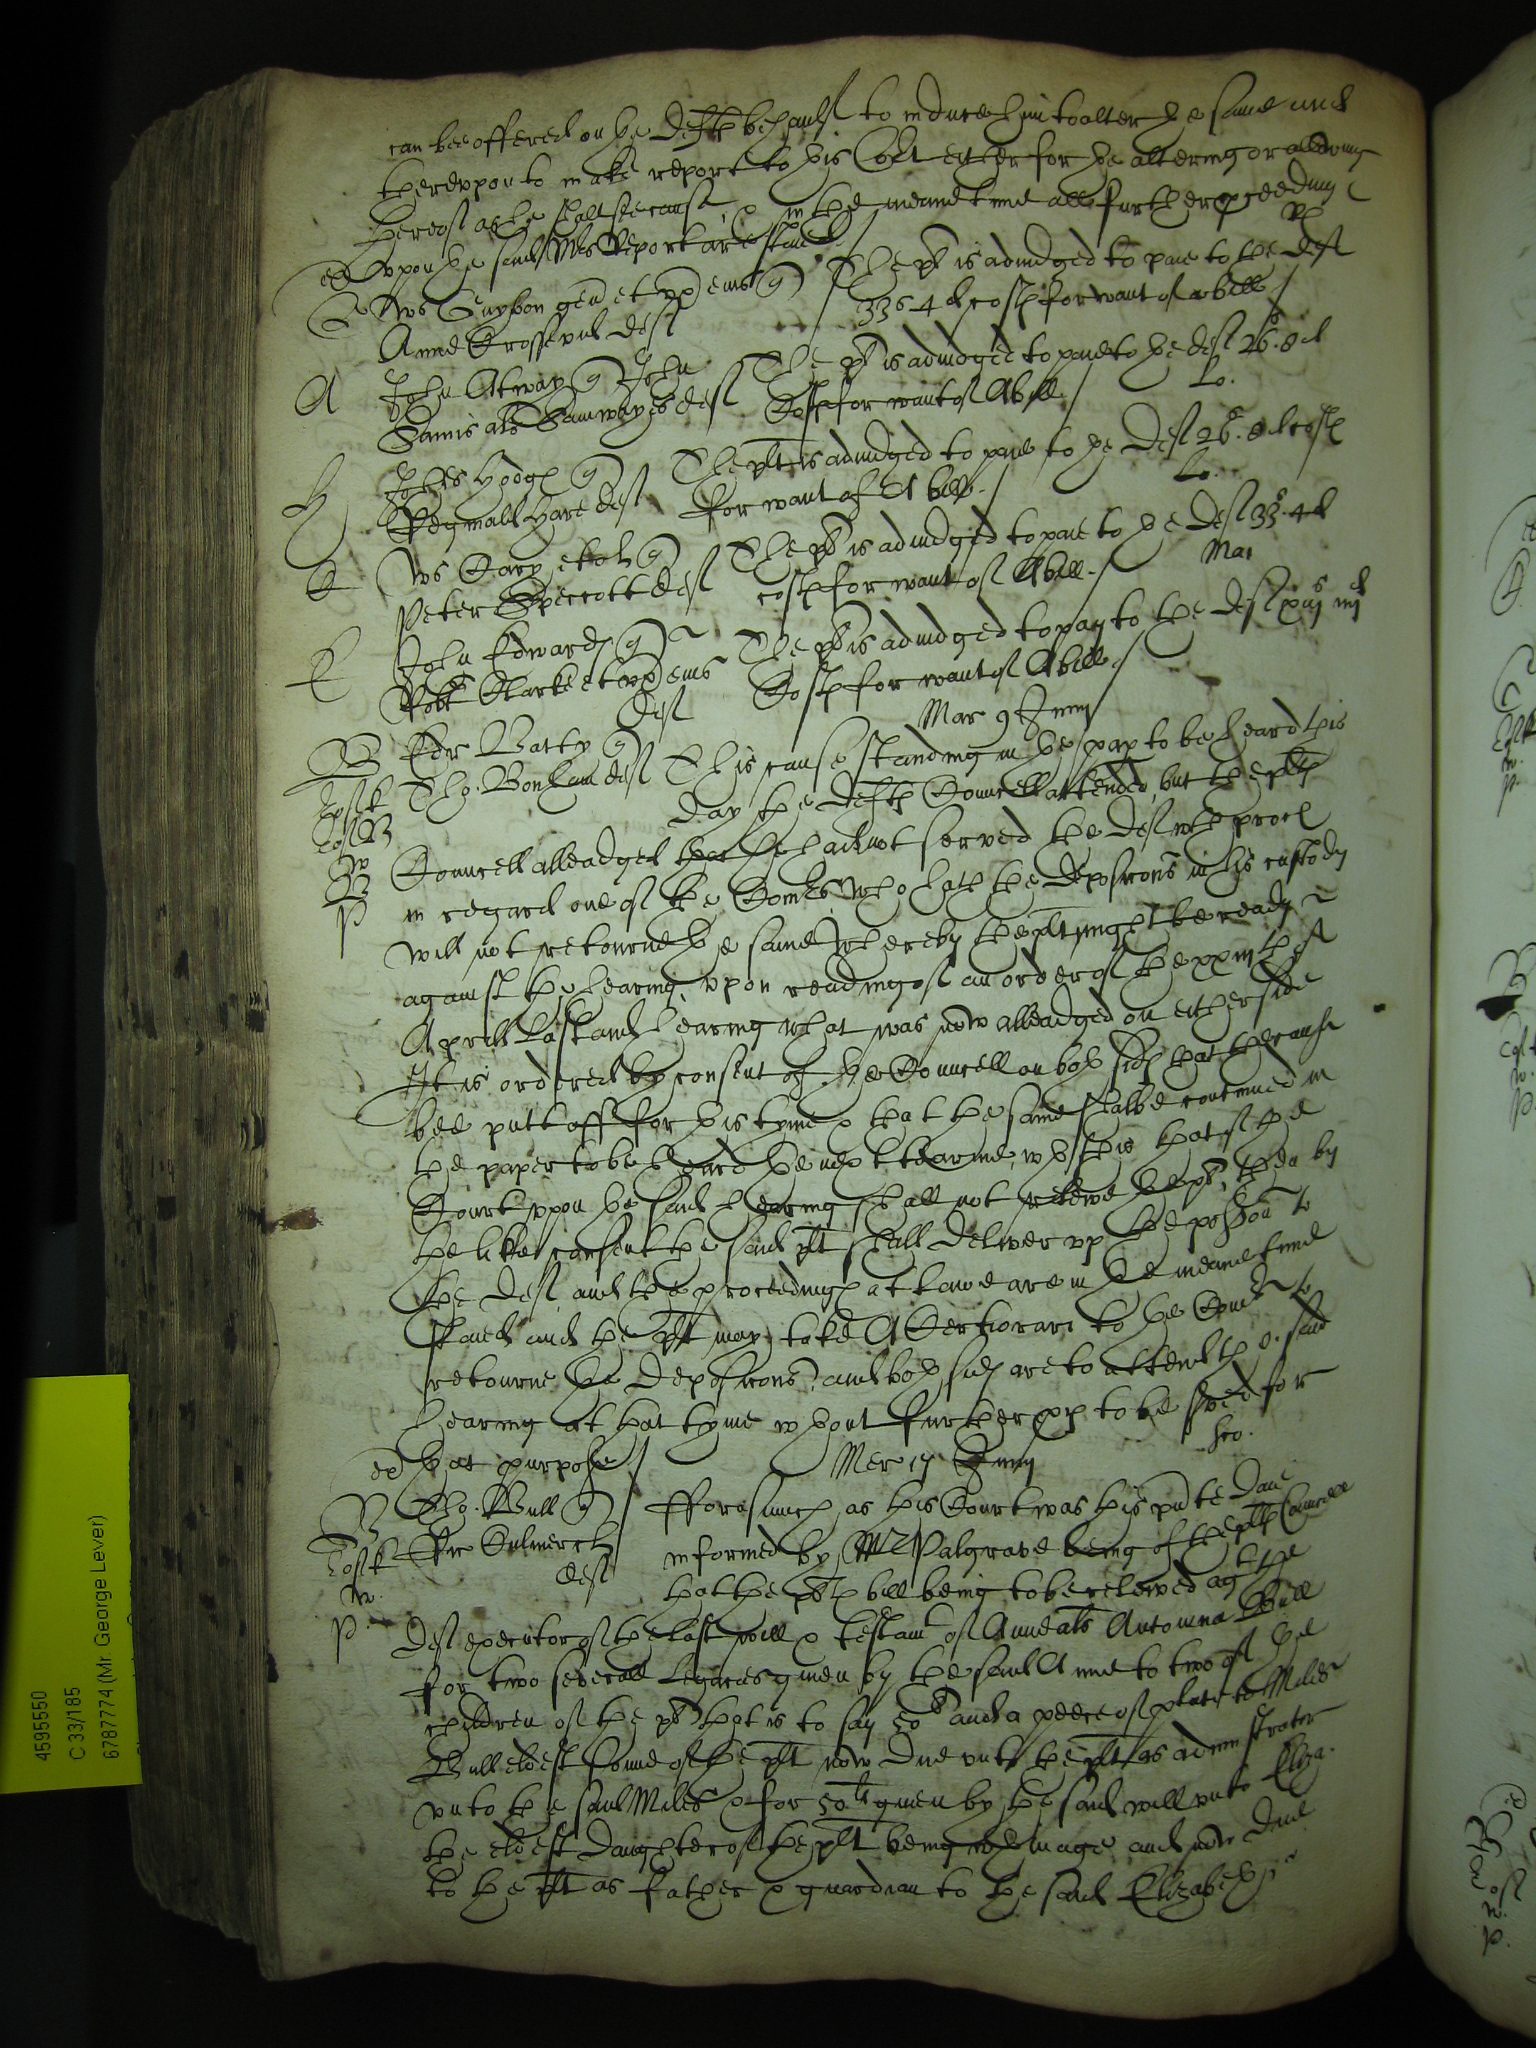 can bee offered on the Defts behaulf to induce him to alter the same and
therevpon to make report to this Cort either for the altering or allowing
thereof as he shall see cause, & in the meane tyme all further proceeding
vpon the said Mrs Report are staied
Rh
Ws Guybon gen et vx eius q
Anne Crosse vid deft
The plt is adiudged to paie to the deft
33s 4d costs for want of a bill /
A
John Atway q John
Samis als Samwayes deft
The plt is adiudged to paie to the deft 26s. 8d
Costs for want of A bill /
Lo.
H
Johes Hodges q
Reginald Hare deft
The plt is adiudged to paie to the Deft 26s. 8d costs
for want of A bill /
Lo.
C
Ws Cary et al q
Peter Speccott deft
The plt is adiudged to paie to the Deft 33s. 4d
costs for want of A bill /
Mar
E
John Edwards q
Robt Clarke et vx eius
deft
The plt is adiudged to pay to the Deft xiijs iiijd
Costs for want of A bill /
Mar 9 Junij
B
Edr Batty q
Tho. Bonham deft
This cause standing in the pap to be heard this
day the Defts Councell attended, but the plts
Councell alleadged that he had not served the Deft wth proces
in regard one of the Comrs who hath the deposicons in his custody
will not retourne the same whereby the plt might be ready
against the hearing, vpon reading of an order of the xxiijth of
Aprill last and hearing what was now alleadged on either side
It is ordered by consent of the Councell on both sides that the cause
bee putt off for this tyme & that the same shalbe continued in
the paper to be heard the next tearme, wth this that if the
Court vpon the said hearing shall not releive the plt, then by
the like consent the said plt shall deliver vp the possion to
the Deft and the proceedings at lawe are in the meane tyme
staied and the plt may take A Certiorari to the Comr to
retourne the deposicons, and both sides are to attend the said
hearing at that tyme wthout further pces to be sved for
that purpose /
Mer 17 Junij
B
Tho. Bull q
deft
fforasmuch as this Court was this pnte daie
informed by Mr Palgrave being of the plts Councell
that the plts bill being to be releived agt the
Deft executor of the last will & testamt of Anne als Antonina Bull
for two severall legacies given by the said Anne to two of the
children of the plt that is to say 50li and a peece of plate to Miles
Bull eldest sonne of the plt now due vnto the plt as administrator
vnto the said Miles & for 50li given by the said will vnto Eliza.
the eldest daughter of the plt being wthin age and now due
to the plt as father & guardian to the said Elizabeth,
4595550
C 33/185
6787774 (Mr. George Lever)